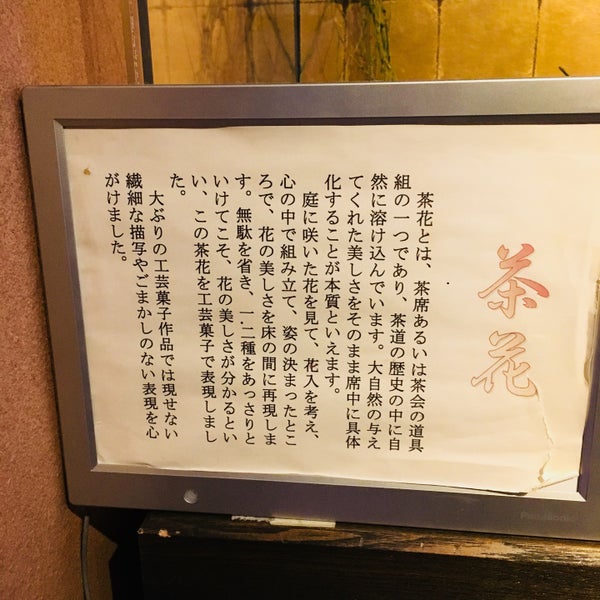 茶花
茶花とは、茶席あるいは茶会の道具
組の一つであり、茶道の歴史の中に自
然に溶け込んでいます。大自然の与え
てくれた美しさをそのまま席中に具体
化することが本質といえます。
庭に咲いた花を見て、花入を考え、
心の中で組み立て、姿の決まったとこ
ろで、花の美しさを床の間に再現しま
す。無駄を省き、一二種をあっさりと
いけてこそ、花の美しさが分かるとい
い、この茶花を工芸菓子で表現しまし
た。
大ぶりの工芸菓子作品では現せない
繊細な描写やごまかしのない表現を心
がけました。
Panasonic